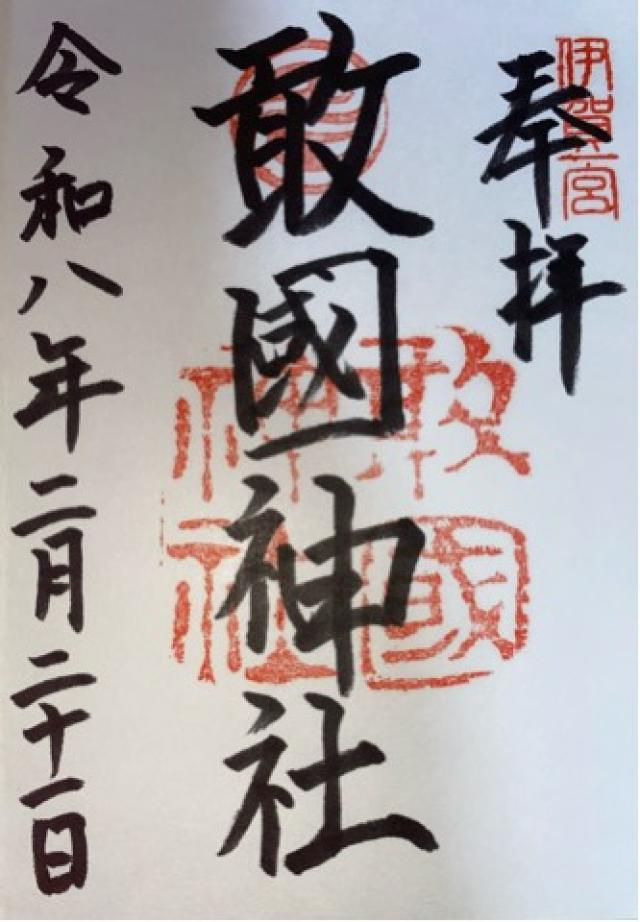 伊賀一宮
奉拝
敢國神社
敢國神社
令和八年二月二十一日